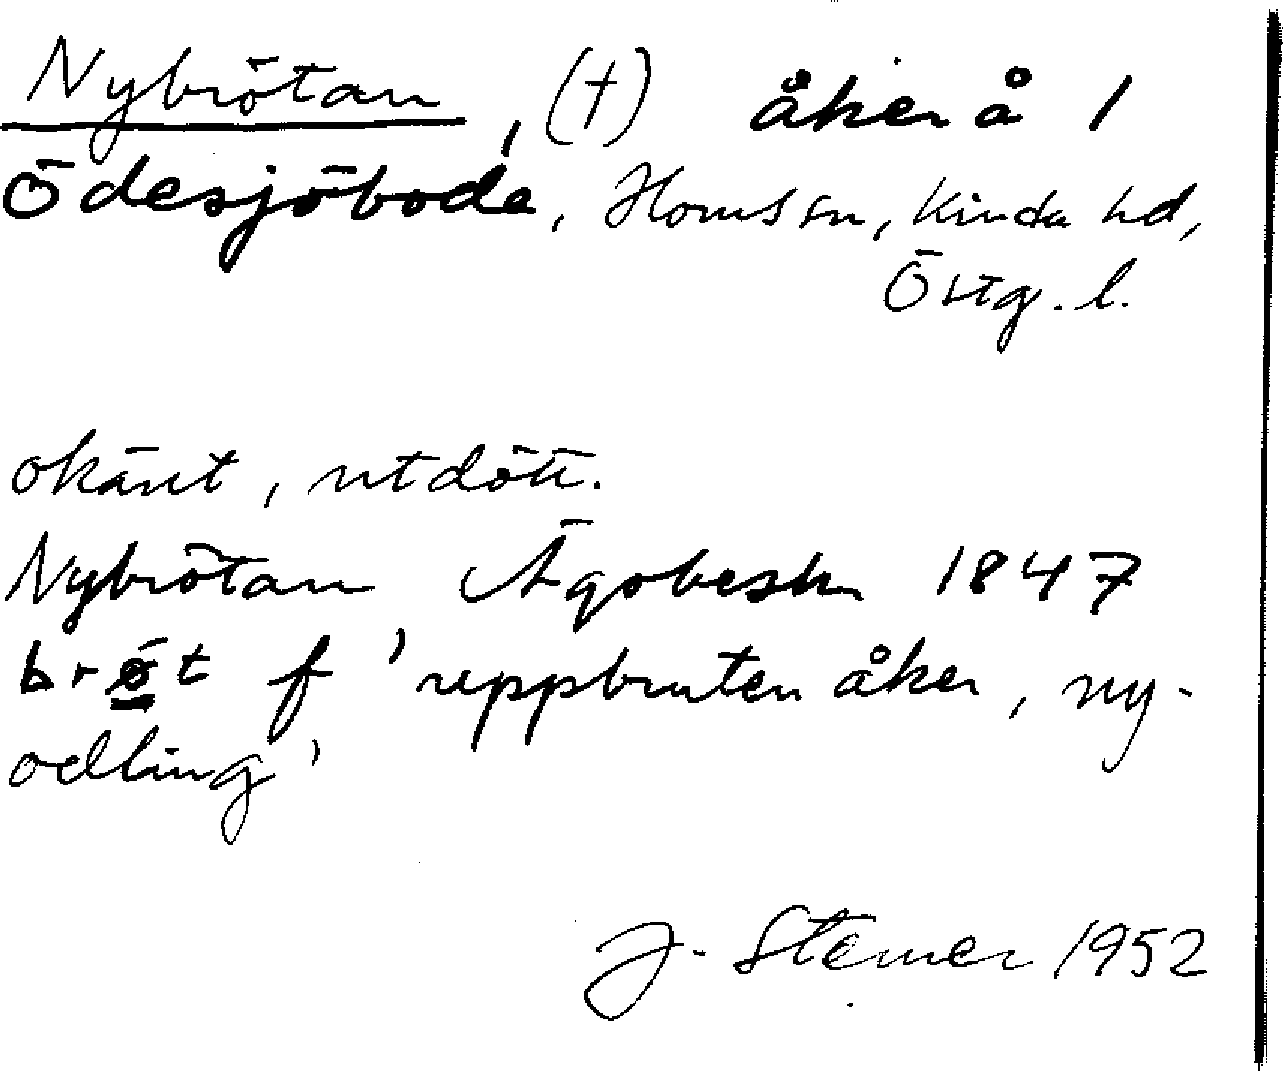 Nybrötan, (†) åker å 1
Ödesjöbode, Homs sn, Kinda hd,
Östg. l.
okänt, utdött.
Nybrötan Ägobeskr 1847
brøt f 'uppbruten åker, ny-
odling'
J. Stemer 1952